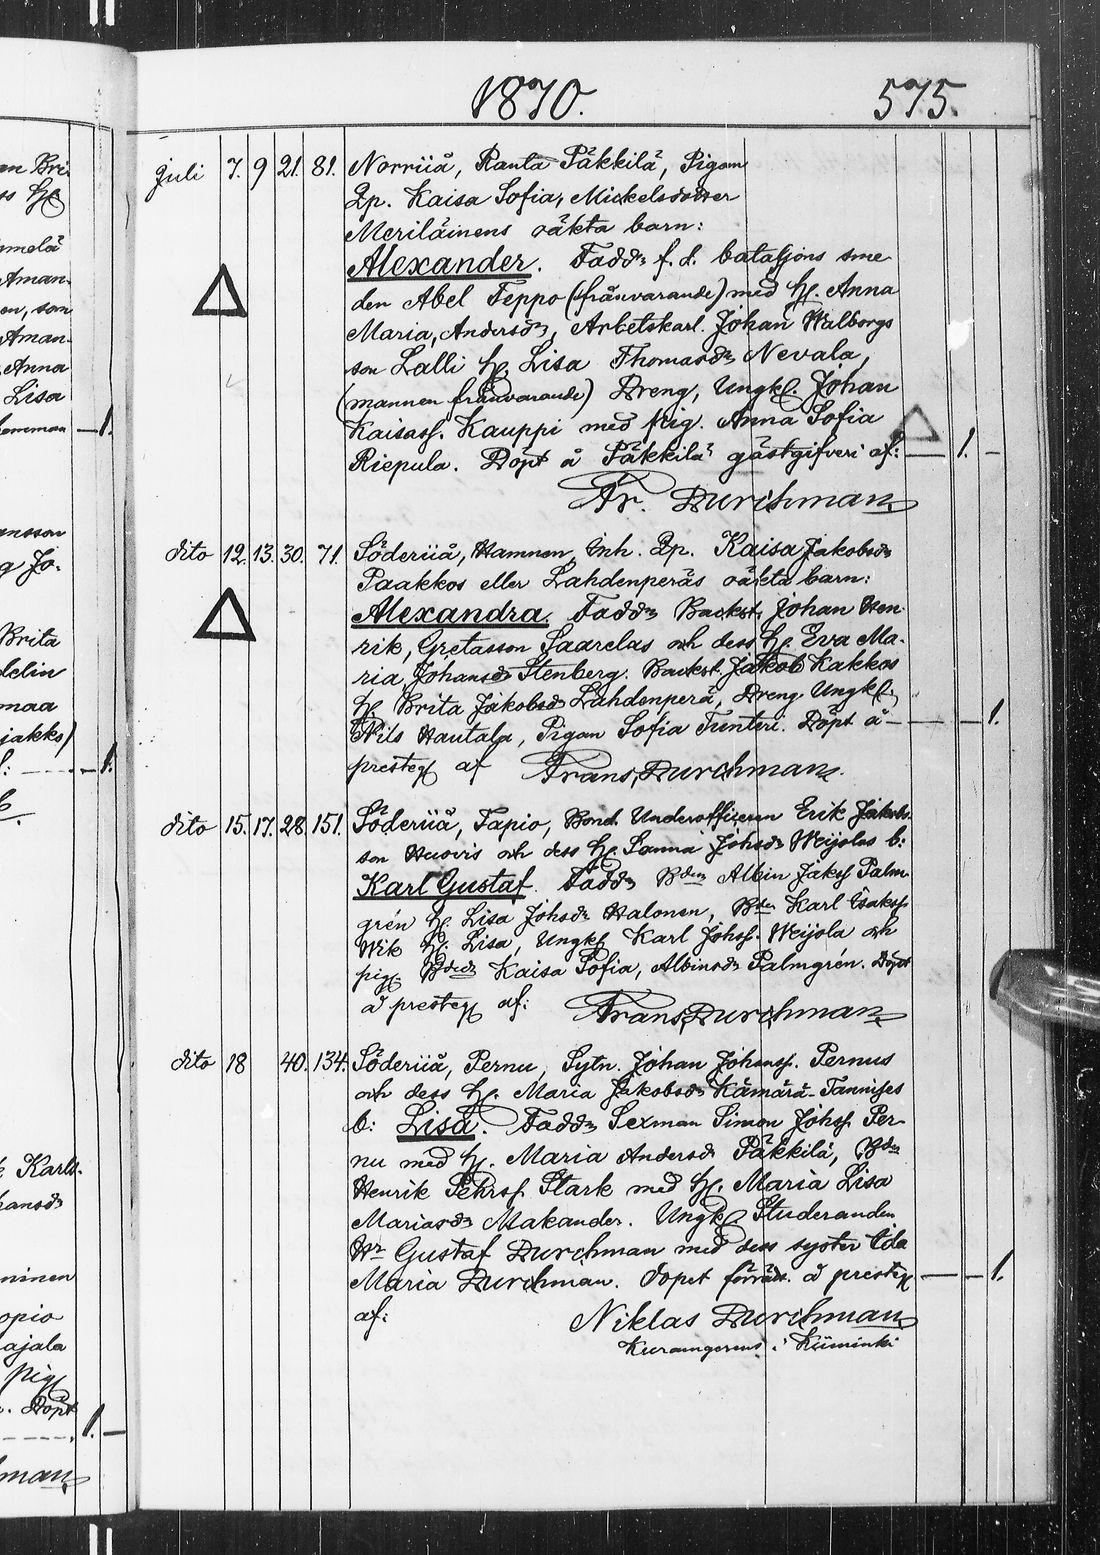 1870.
575.
Juli 7. 9 21. 81. Norriiå, Ranta Päkkilä, Pigan
Qp. Kaisa Sofia, Mickelsdotter
Meriläinens oäkta barn:
Alexander. Fadd: f. d. bataljons sme
den Abel Teppo (frånvarande) med h. Anna
Maria, Andersdr, Arbetskarl. Johan Walborgs
son Lalli h. Lisa Thomasdr Nevala,
(mannen frånvarande) Dreng, Ungk. Johan
Kaisass. Kauppi med pig. Anna Sofia
Riepula. Döpt å Päkkilä gästgifveri af: 1. -
Fr. Durchman
dito 12. 13. 30. 71. Söderiiå, Hamnen, Inh. Qp. Kaisa Jakobsdr
Paakkos eller Lahdenperäs oäkta barn:
Alexandra. Fadd: Backst. Johan Hen
rik, Gretasson Saarelas och dess h. Eva Ma-
ria Johansdr Stenberg. Backst. Jakob Kakkos
h. Brita Jakobsdr Lahdenperä, Dreng Ungk.
Nils Hautala, Pigan Sofia Tunteri. Döpt å - 1.
presteg af Frans Durchman.
dito 15. 17. 28. 151. Söderiiå, Tapio, Bond. Underofficeren Erik Jakobs
son Huovis och dess h. Sanna Johsdr Weijolas b:
Karl Gustaf. Fadd: Bden Albin Jaks. Palm
grén h. Lisa Johsdr Halonen, Bden Karl Isakss.
Wik h. Lisa, Ungk Karl Johss. Weijola och
pig. Kaisa Sofia, Albinsdr Palmgrén. Döpt
å presteg af: Frans Durchman
dito 18 40. 134. Söderiiå, Pernu, Sytn. Johan Johanss. Pernus
och dess h. Maria Jakobsdr Kämärä-Tannises
b: Lisa. Fadd: Sexman Simon Johss. Per-
nu med h. Maria Andersdr Päkkilä, Bden
Henrik Pehrss. Stark med h. Maria Lisa
Mariasdr Makander. Ungk Studeranden
Hr Gustaf Durchman med dess syster Ida
Maria Durchman. Dopet förrätt. å presteg - 1.
af: Niklas Durchman
i Kiiminki